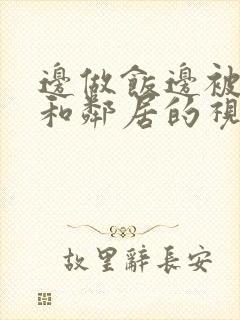 邊做飯邊被
和鄰居的視
故里辭長安